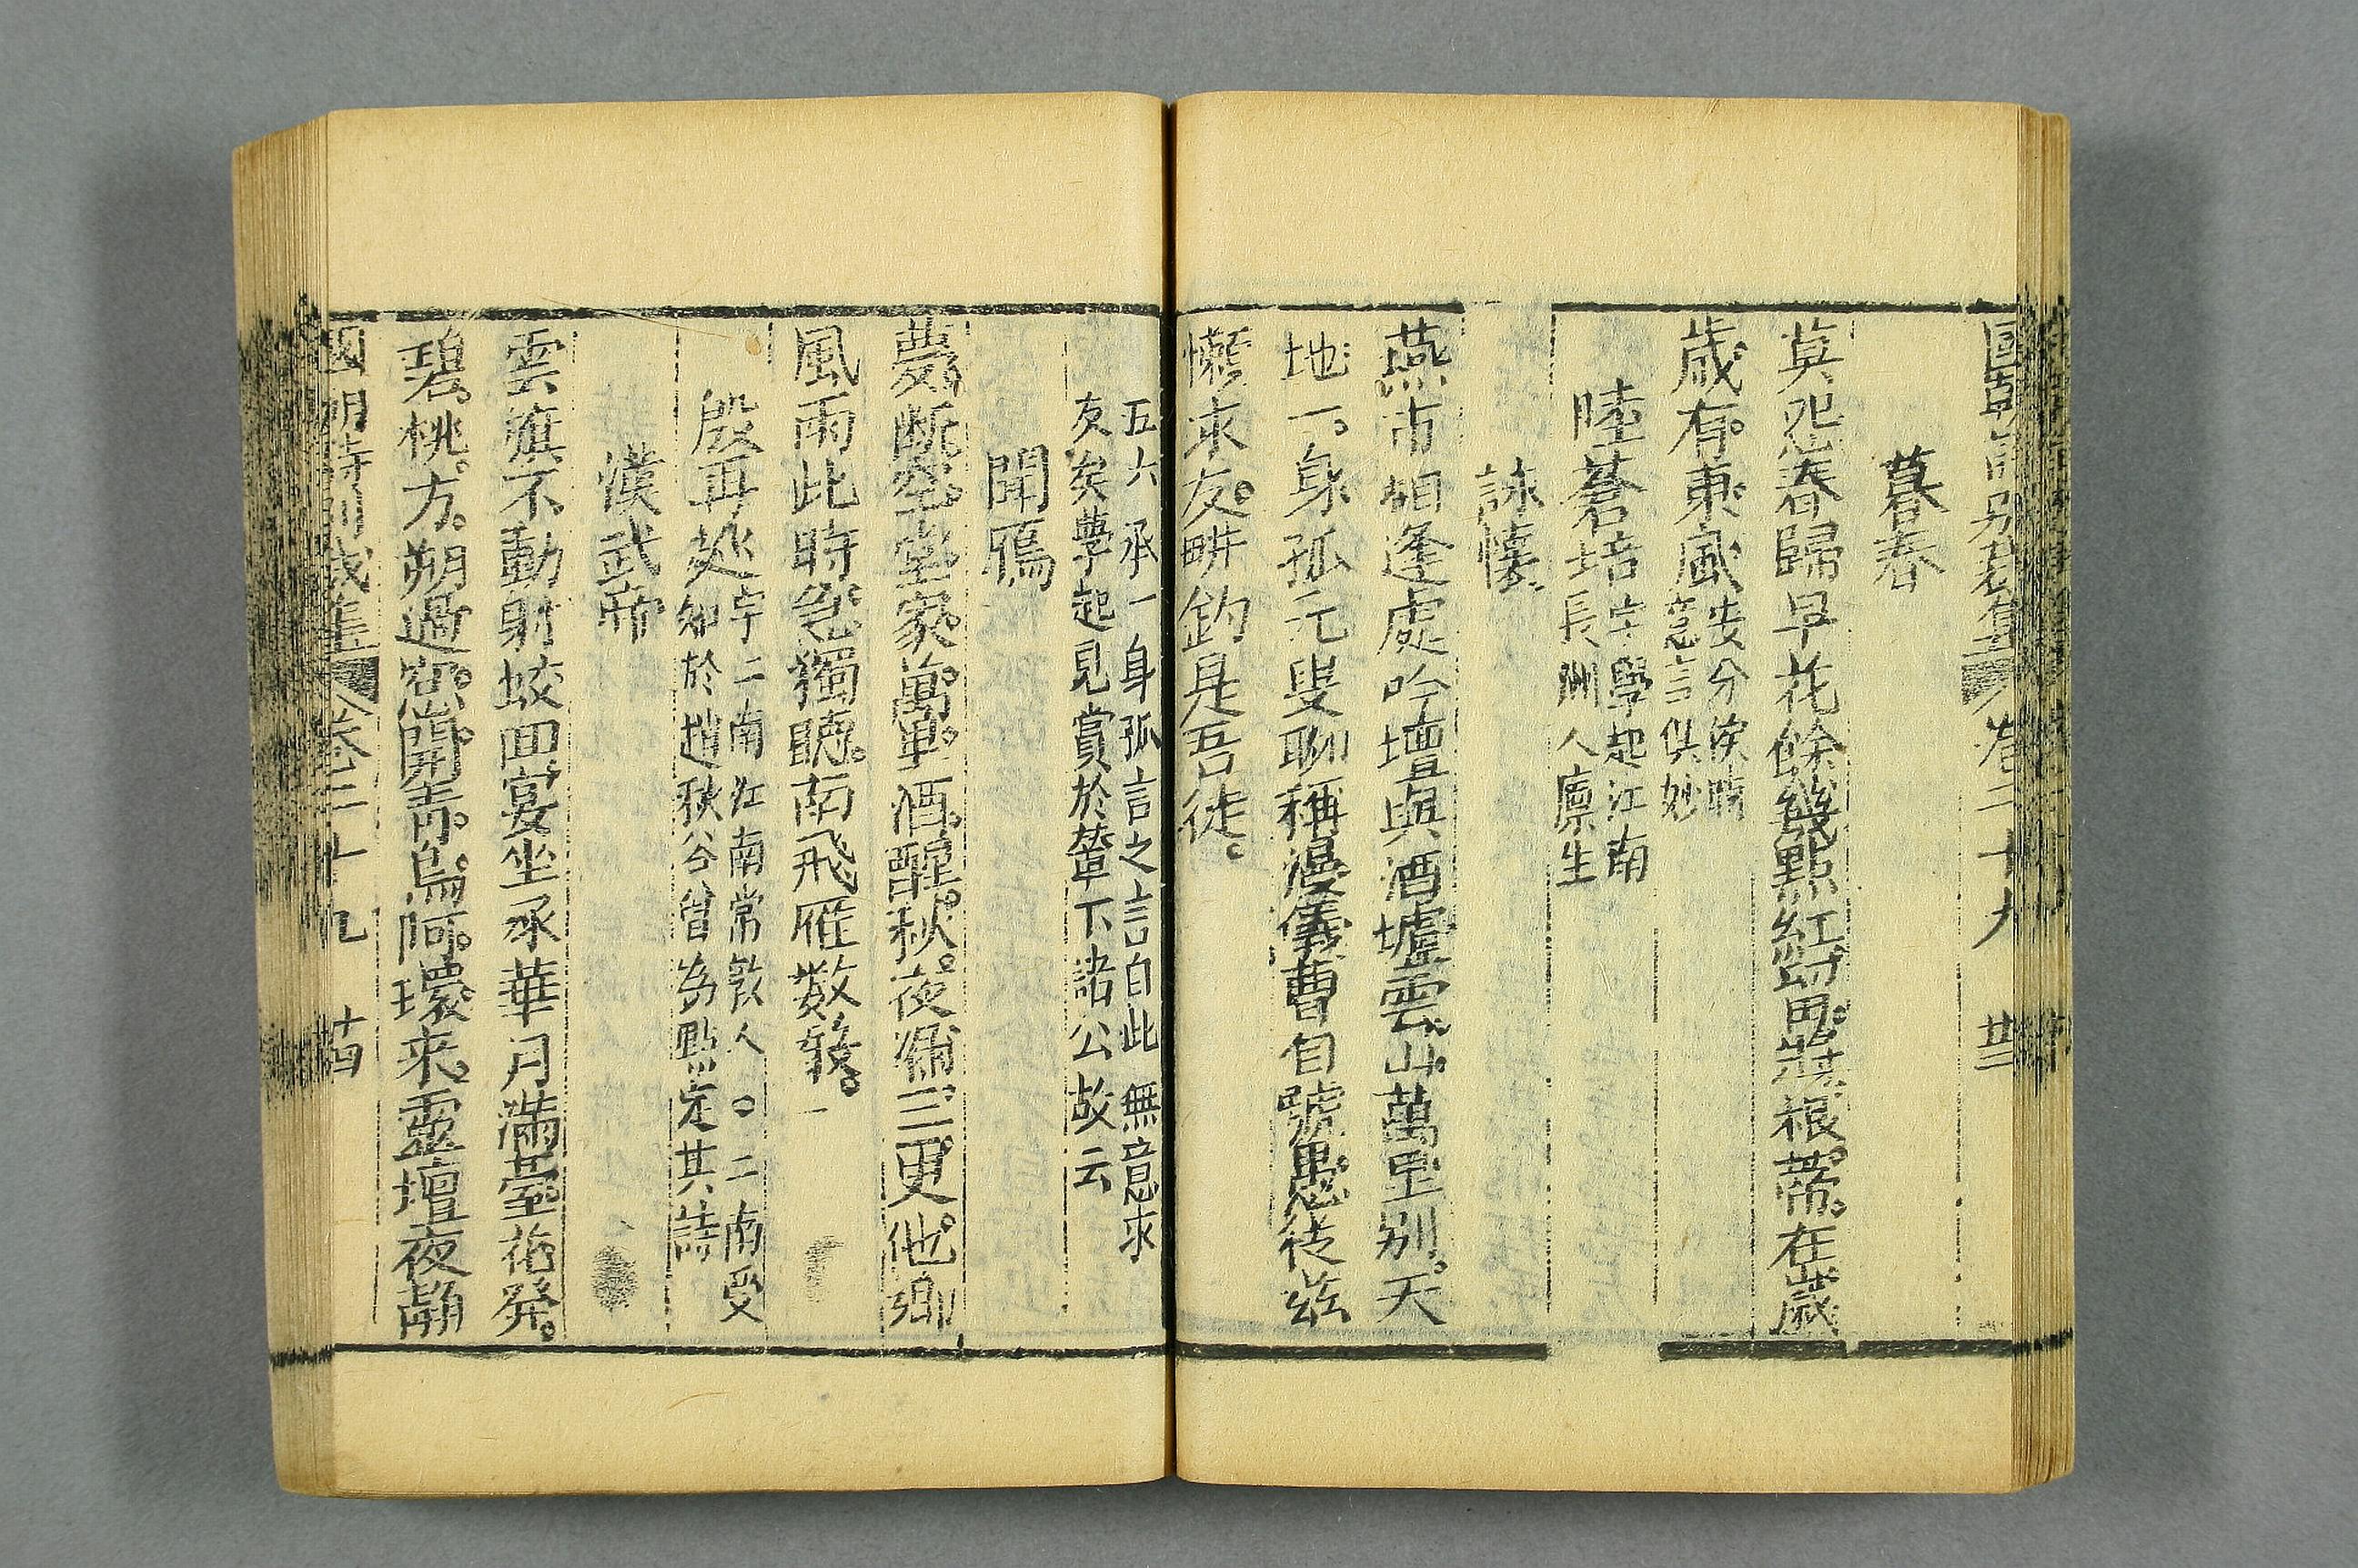 國朝詩別裁集 卷二十九 廿三
暮春
莫怨春歸早花餘幾點紅留將根蒂在歲
歲有東風安分俟時
寬言俱妙
陸蒼培字學起江南
長洲人廩生
詠懷
燕市相逢處吟壇與酒壚雲山萬里别天
地一身孤元叟聊稱漫儀曹自號愚從兹
懶求友耕釣是吾徒
五六承一身孤言之言自此無意求
友矣學起見賞於輦下諸公故云
聞鴈
夢斷空堂家萬里酒醒秋夜漏三更他鄉
風雨此時急獨聽南飛雁数聲
殷再廵字二南江南常熟人○二南受
知於趙秋谷曾為點定其詩
漢武帝
雲旗不動射蛟回宴坐承華月滿臺花發
碧桃方朔過窓開青鳥阿環来靈壇夜靜
國朝詩別裁集 卷二十九 廿四